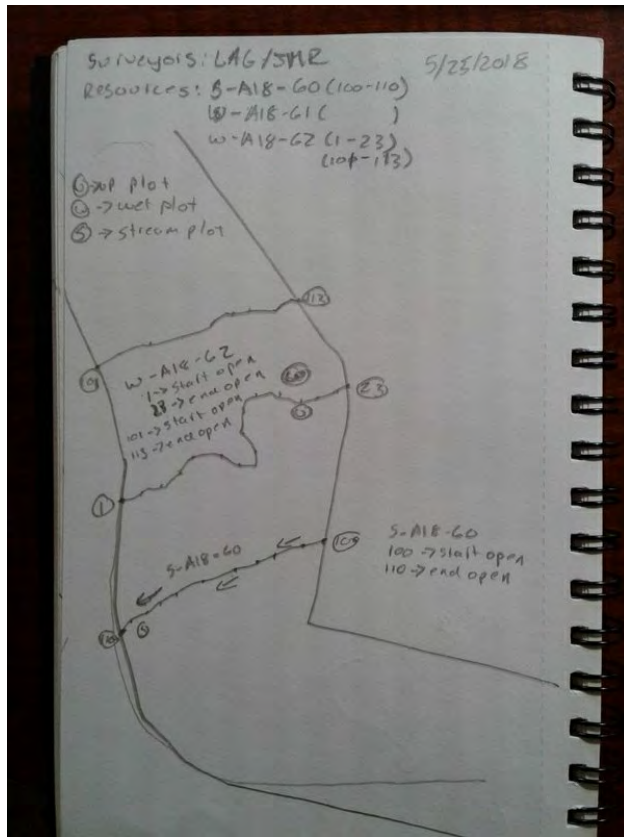 Surveyors: LAG/JMR 5/25/2018
Resources: S-A18-60 (100-110)
W-A18-61 ( )
W-A18-62 (1-23)
(101-113)
U → up plot
W → wet plot
S → stream plot
113
101
W-A18-62
1 → start open
23 → end open
101 → start open
113 → end open
23
1
S-A18-60
S-A18-60
100 → start open
110 → end open
S